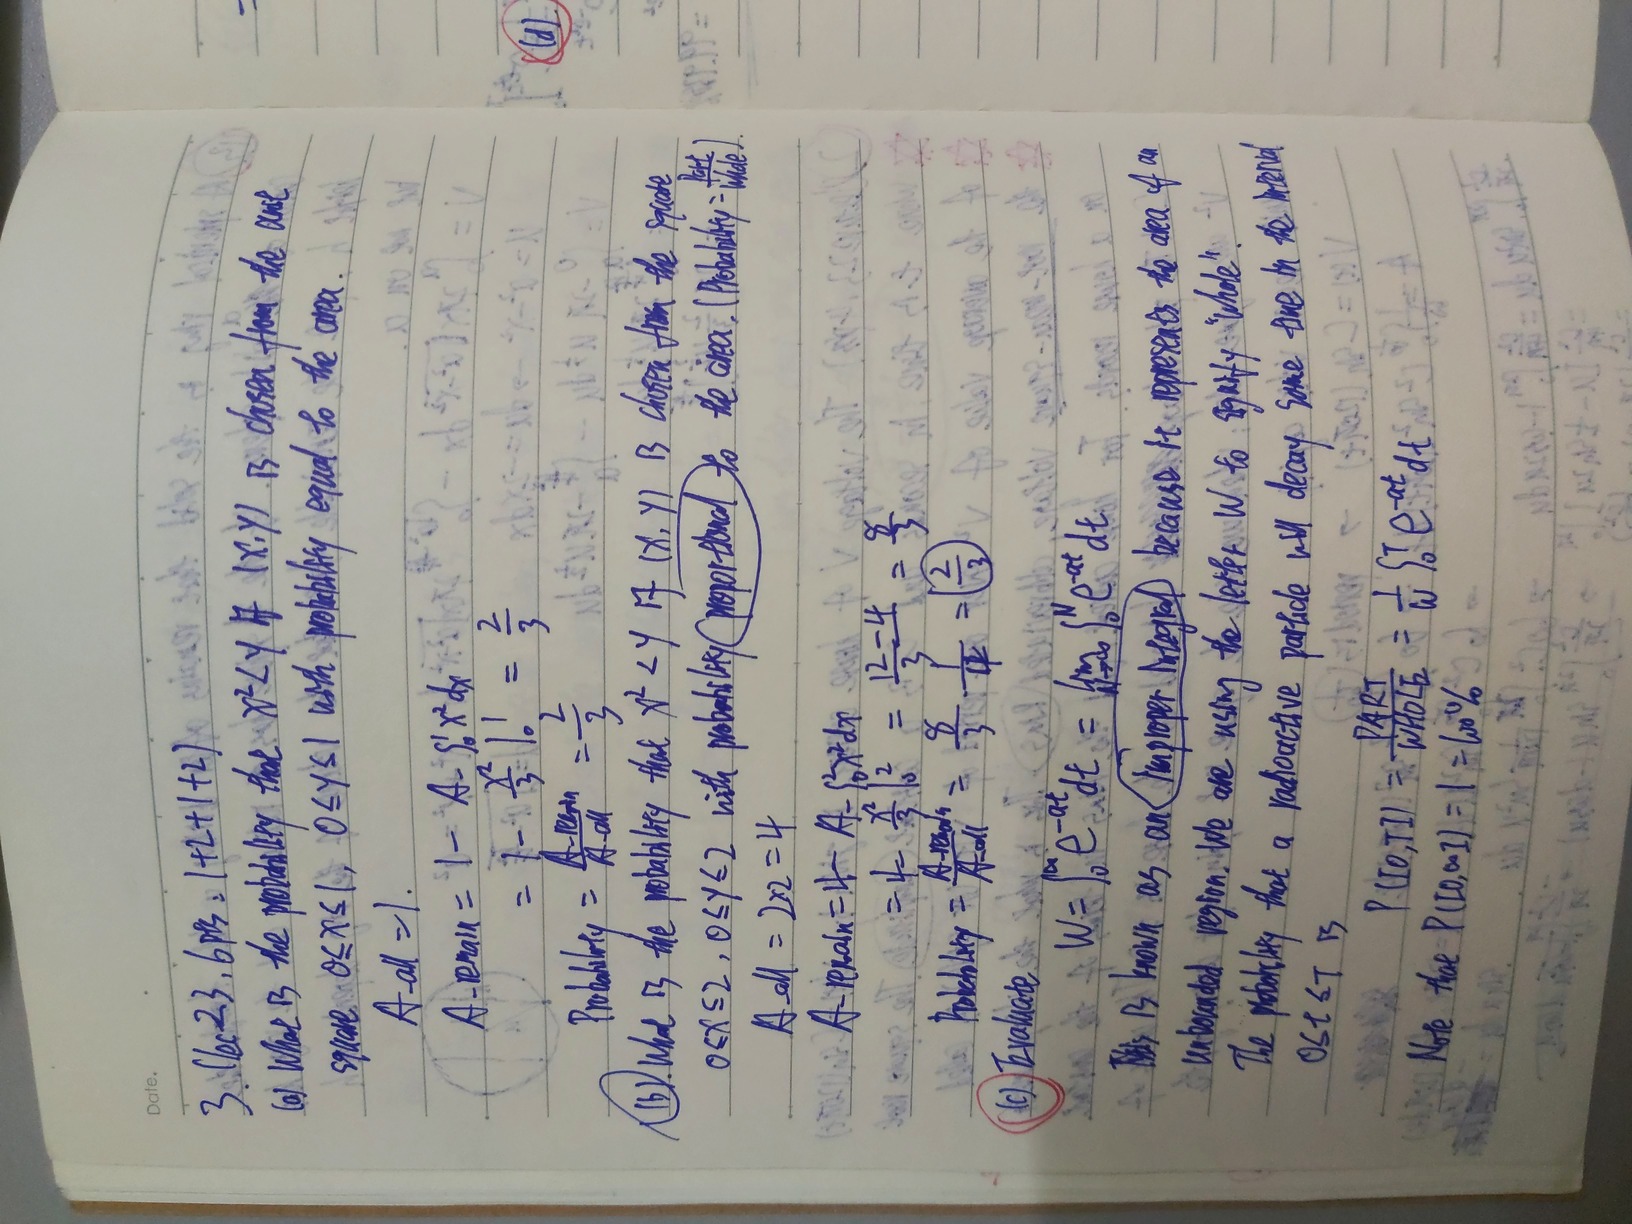 Date.
3. (lec 23, 6pts = 1+2+1+2)
(a) What is the probability that x² < y if (x, y) is chosen from the unit
square 0≤x≤1, 0≤y≤1 with probability equal to the area.
A_all = 1.
A_remain = 1 - A_∫₀¹x²dx
= 1 - x²/3 |₀¹ = 2/3
Probability = A_remain/A_all = 2/3
(b). What is the probability that x² < y if (x, y) is chosen from the square
0≤x≤2, 0≤y≤2 with probability proportional to the area. (Probability = Part/Whole).
A_all = 2×2 = 4
A_remain = 4 - A_∫₀²x²dx
= 4 - x²/3 |₀² = 12-4/3 = 8/3
Probability = A_remain/A_all = 8/3 · 1/4 = 2/3
(c) Evaluate
W = ∫₀^∞ e^-at dt = lim N→∞ ∫₀^N e^-at dt
This is known as an improper integral because it represents the area of an
unbounded region. We are using the letter W to signify "whole".
The probability that a radioactive particle will decay some time in the interval
0≤t≤T is
P([0,T]) = PART/WHOLE = 1/W ∫₀^T e^-at dt
Note that P([0,∞]) = 1 = 100%
(d).